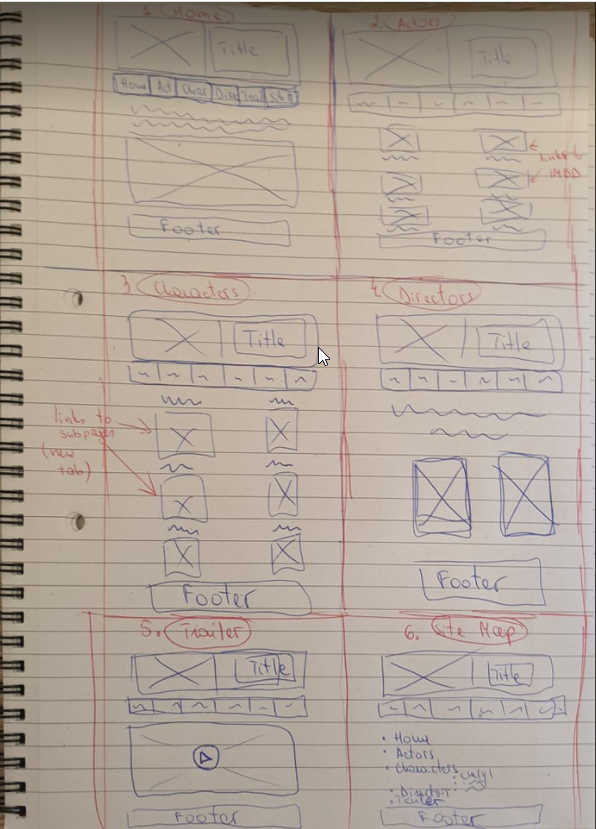 1 Home
Title
Home
Footer
2. Actors
Title
links to
IMBD
Footer
3 Characters
Title
links to
subpages
(new
tab)
Footer
4. Directors
Title
Footer
5. Trailer
Title
Footer
6. Site Map
Title
• Home
• Actors
• Characters
Trailer
Footer